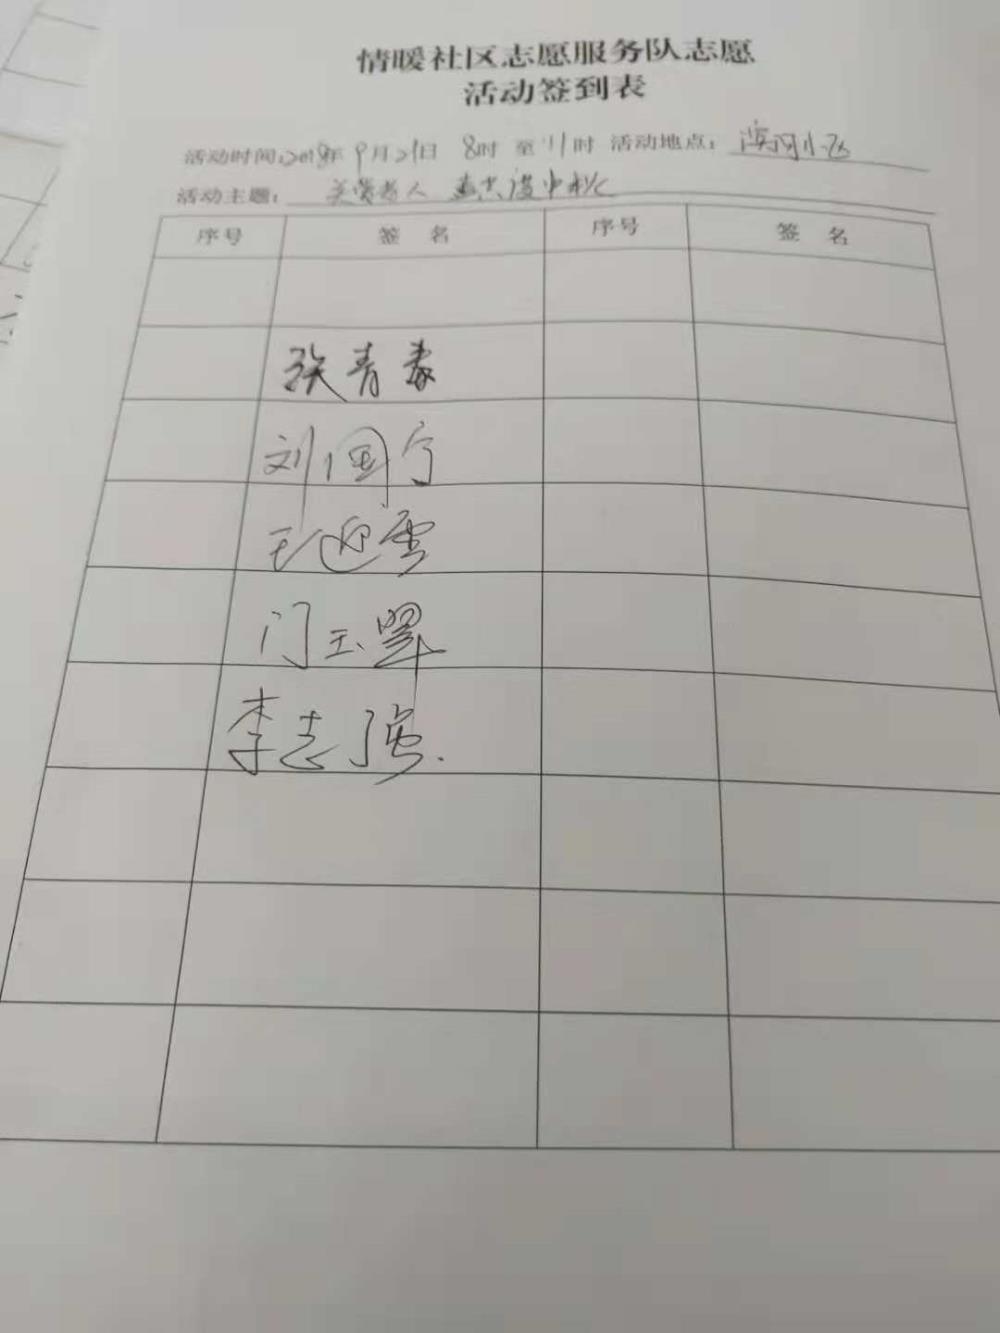 情暖社区志愿服务队志愿
活动签到表
活动时间:2018年9月21日 8时 至 11时 活动地点: 滨河小区
活动主题: 关爱老人 共度中秋
序号 签 名 序号 签 名
张青春
刘国宁
王迎雪
门玉翠
李志强